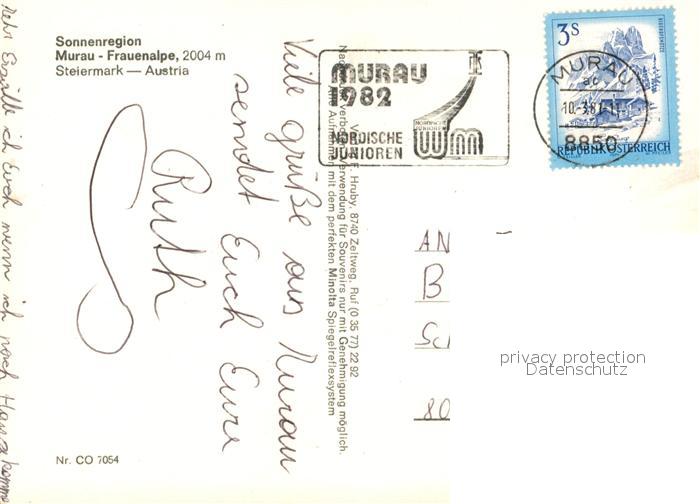 Sonnenregion
Murau - Frauenalpe, 2004 m
Steiermark — Austria
Viele Grüße aus Murau
sendet Euch Eure
Ruth
Mehr Erzälle ich Euch wenn ich nach Hause komme
Nr. CO 7054
MURAU
1982
NORDISCHE
JUNIOREN
NORDISCHE
JUNIOREN
WM
3S
REPUBLIK ÖSTERREICH
MURAU
10.-3.81-11
8850
F. Hruby, 8740 Zeltweg, Ruf (0 35 77) 22 92
Verwendung für Souvenirs nur mit Genehmigung möglich.
Aufnahmen mit dem perfekten Minolta Spiegelreflexsystem
AN
B
80
privacy protection
Datenschutz